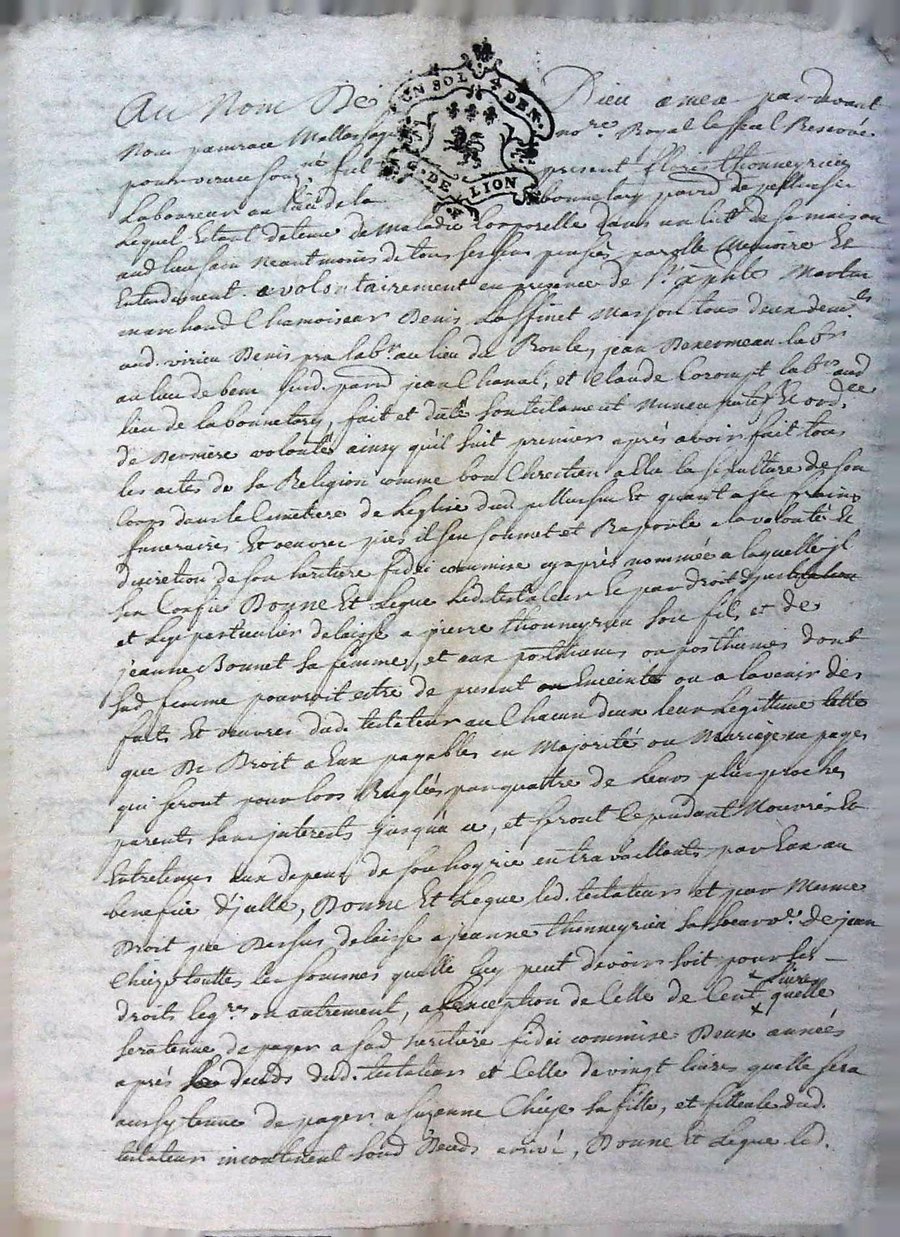 UN SOL 4 DEN.
G. DE LION
Au Nom De Dieu amen pardevant
nore. Royal le seel Reservé
pour virieu souz.né fut present fleury thonneyrieu
Laboureur au lieu de la bonnetary parr.d de pellussin
Lequel Estant detenu de Maladie Corporelle dans un lict de sa maison
aud lieu sain Neantmoins de tous ses sens pensés parolle Memoire Et
Entendement a volontairement en presence de Sr. Martin
marchand Chamoiseur Denis Laffinet Masson tous deux dem.ts
aud. virieu Denis pra lab.r au lieu du Roule, jean lab.r
au lieu de susd. parr.d jean Chanal, et Claude Corompt lab.r aud
lieu de la bonnetary, fait et dicté son testament Nuncupatif Et ord.ce
de Derniere volonté ainsy qu'il suit premier après avoir fait tous
les actes de sa Religion comme bon Chrestien a Elu la sepulture de son
Corps dans le Cimetiere de Leglise dud pellussin Et quant a ses frains
funeraires Et oeuvres pies il s'en soumet et Raporte a la volonté Et
discretion de son heritiere fidei commise cy après nommée a laquelle jl
s'en Confie Donne Et Legue Led. testateur Et par droit
et Legs particulier delaisse a pierre thonneyrieu son fils et de
jeanne Bonnet sa femme, et aux posthumes ou posthumes dont
sad femme pourroit estre de present Enceinte ou a lavenir des
faits Et oeuvres dud. testateur au Chacun deux leur Legittime telle
que De Droit a Eux payables en Majorité ou Mariage au pages
qui seront pour lors Reglés par quattre de leurs plus proches
parents sans jnterests jusqua ce, et seront Cependant Nourris Et
Entretenus aux depens de son hoyrie en travaillants par Eux au
benefice d'jcelle, Donne Et Legue led. testateur et par Mesme
Droit que Dessus delaisse a jeanne thonneyrieu sa soeur v.e de jean
Chieze touttes les sommes quelle luy peut devoir soit pour ses
droits leg.res ou autrement, a lexception de Celle de Cent livres quelle
sera tenue de payer a sad heritiere fidei commise Deux années
après Le decéds dud. testateur et Celle de vingt livres quelle sera
aussy tenue de payer a suzenne Chieze sa fille, et filleule dud.
testateur incontinent sond Decéds arrivé, Donne Et Legue led.